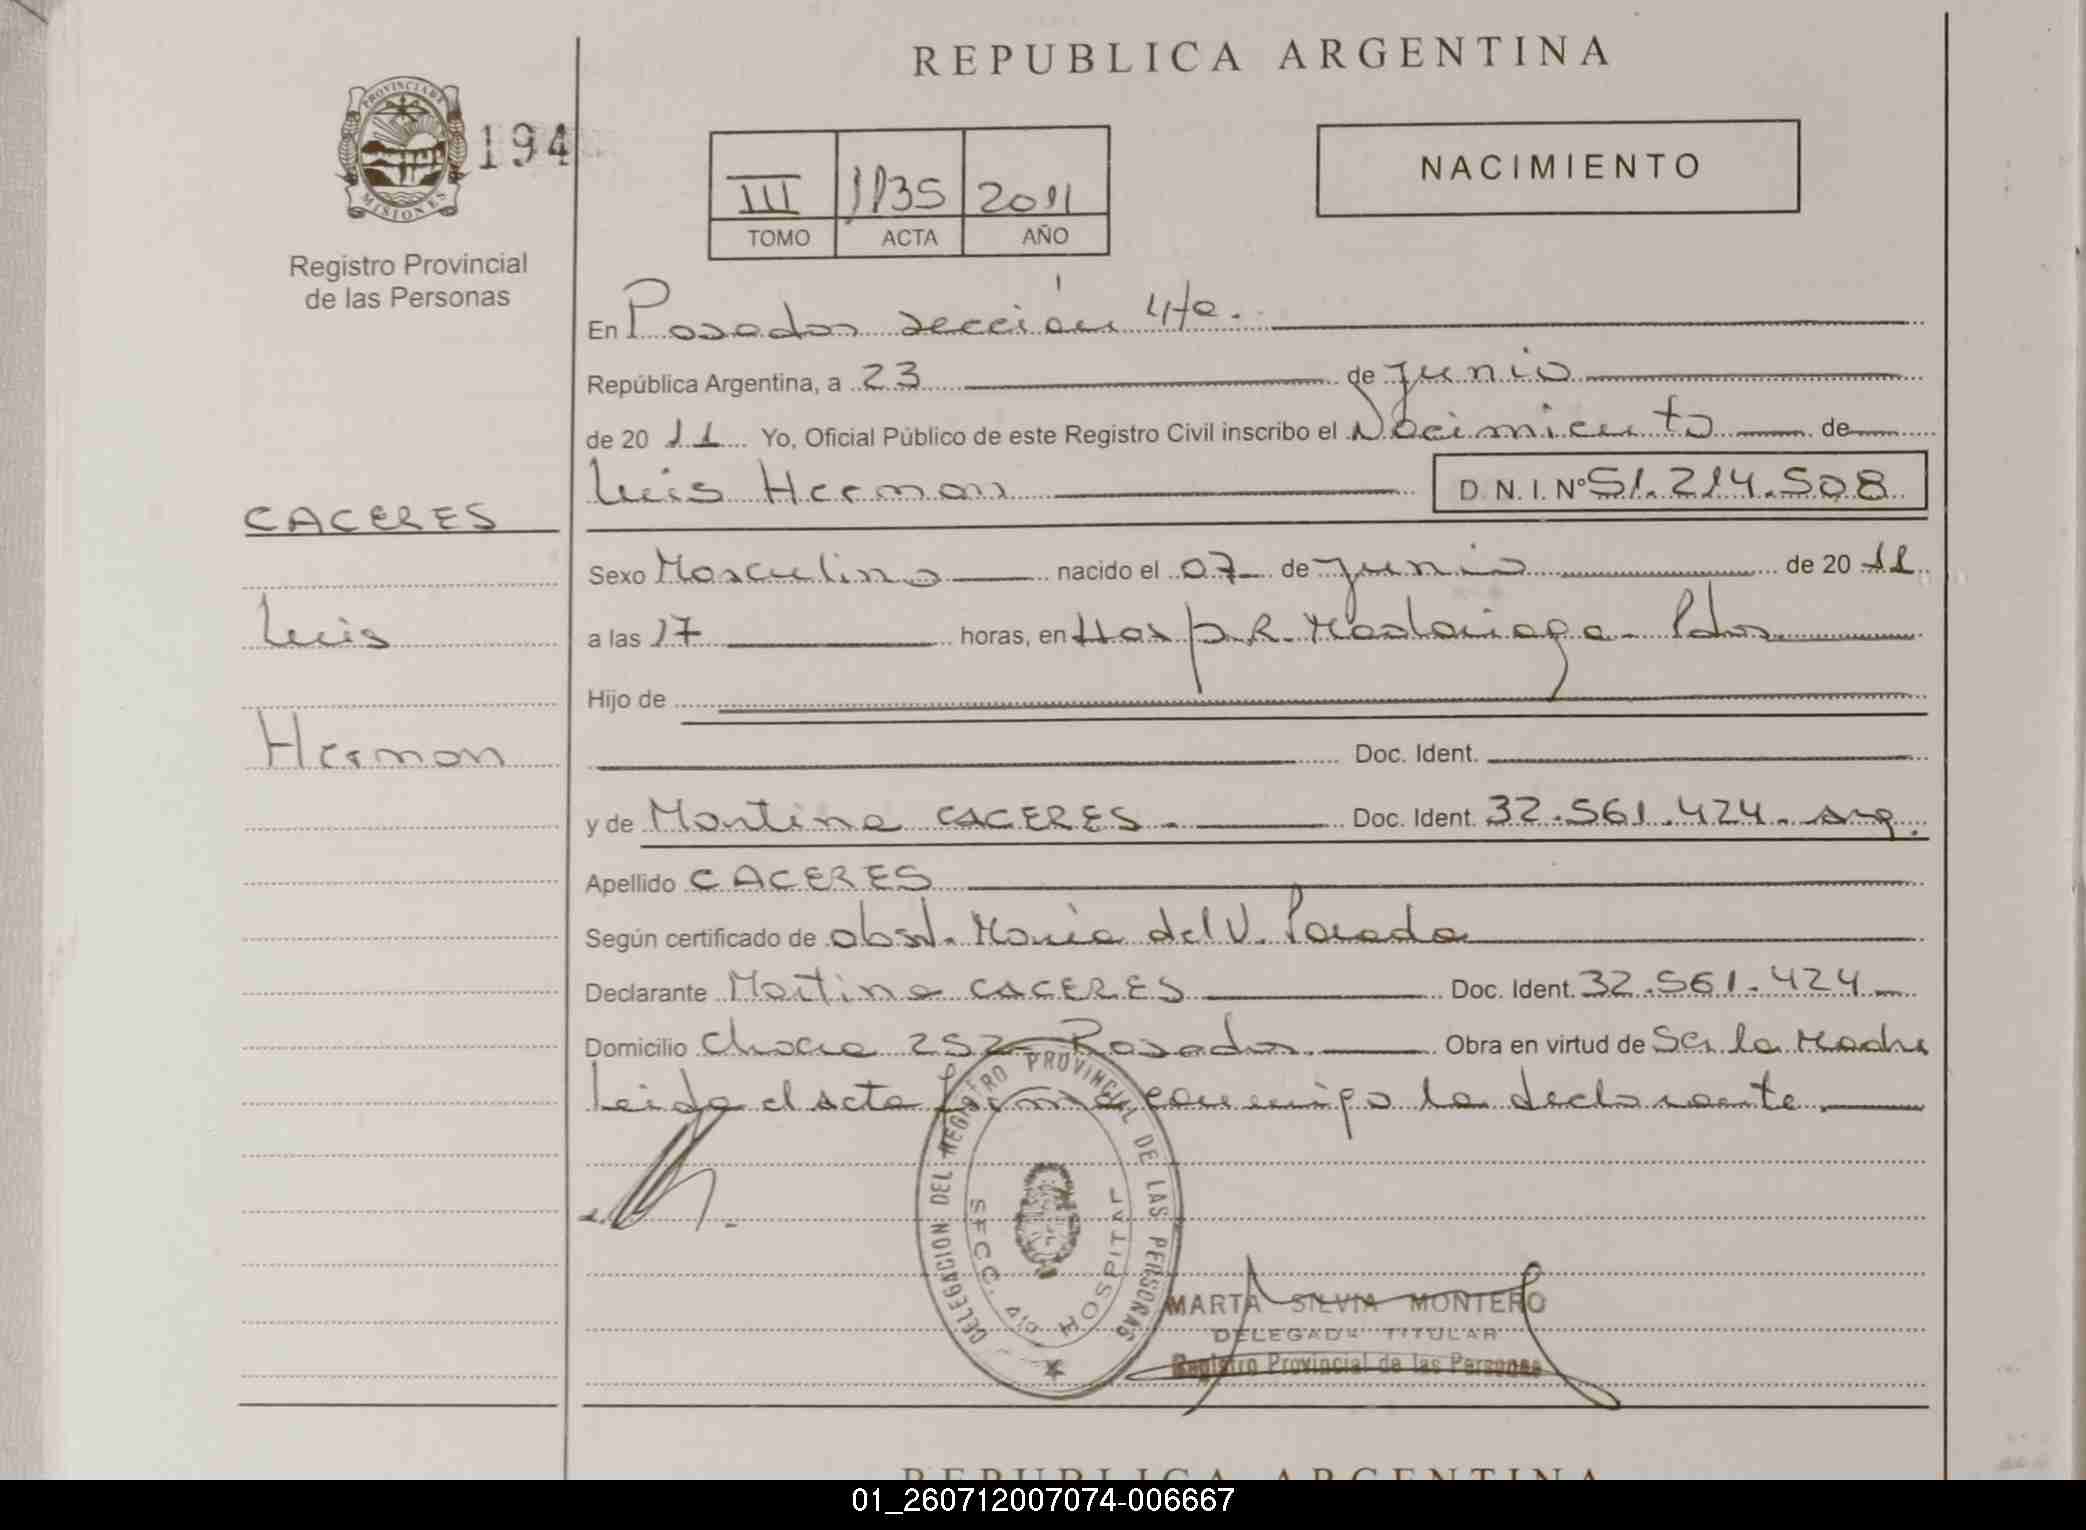 REPUBLICA ARGENTINA
PROVINCIA DE
MISIONES
194
Registro Provincial
de las Personas
III 1135 2011
TOMO ACTA AÑO
NACIMIENTO
En Posadas sección 4ta.
República Argentina, a 23 de junio
de 20 11 Yo, Oficial Público de este Registro Civil inscribo el Nacimiento de
Luis Hernan D.N.I. Nº 51.214.508
CACERES
Luis
Hernan
Sexo Masculino nacido el 07 de junio de 20 11
a las 17 horas, en Hosp. R. Madariaga - Pdas.
Hijo de
Doc. Ident.
y de Martina CACERES. Doc. Ident. 32.561.424. arg.
Apellido CACERES
Según certificado de obst. Maria del V. Parada
Declarante Martina CACERES Doc. Ident. 32.561.424
Domicilio 252 Posadas. Obra en virtud de Ser la Madre
Leida el acta firma conmigo la declarante.
DELEGACION DEL REGISTRO PROVINCIAL DE LAS PERSONAS
SECC. HOSPITAL
MARTA SILVIA MONTERO
DELEGADA TITULAR
Registro Provincial de las Personas
REPUBLICA ARGENTINA
01_260712007074-006667